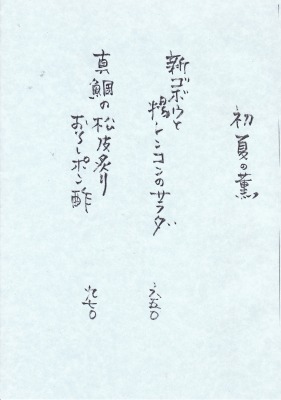 初夏の薫
新ゴボウと
揚レンコンのサラダ
六五〇
真鯛の松皮炙り
おろしポン酢